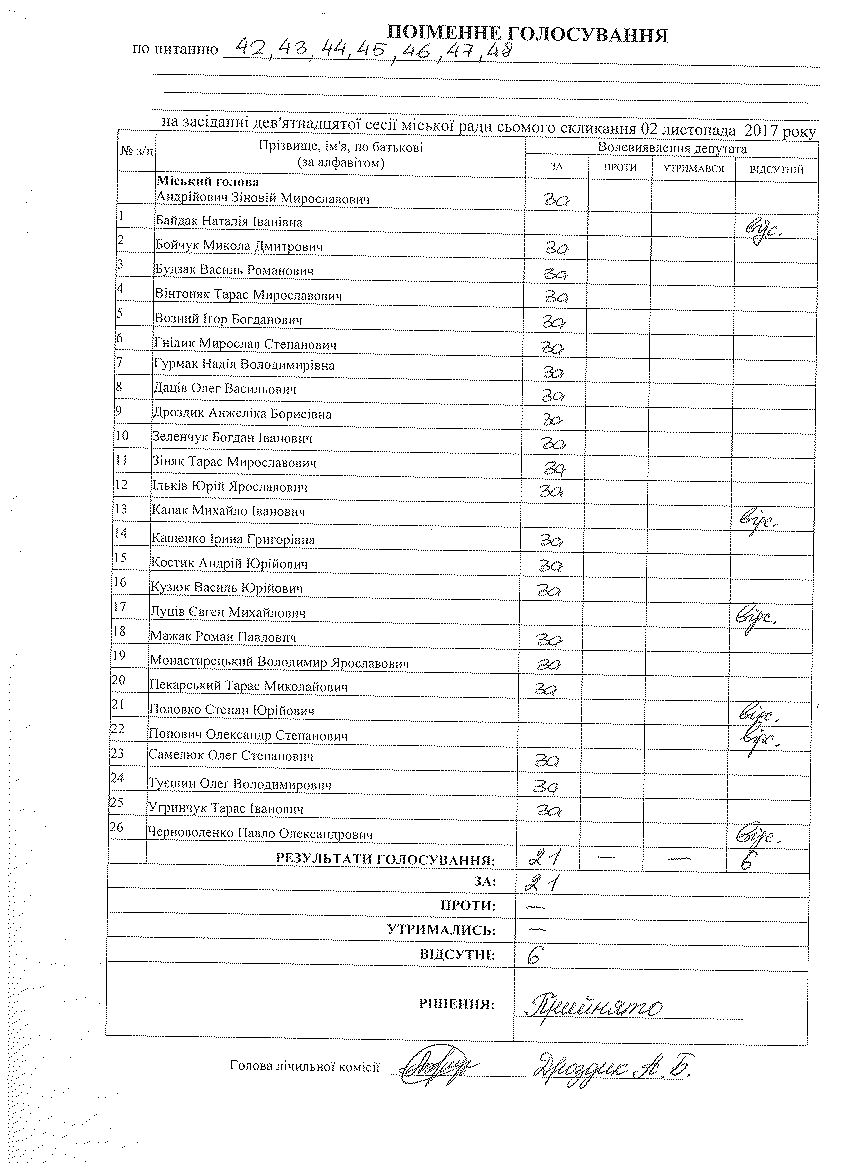 ПОІМЕННЕ ГОЛОСУВАННЯ
по питанню 42, 43, 44, 45, 46, 47, 48
на засіданні дев'ятнадцятої сесії міської ради сьомого скликання 02 листопада 2017 року
№ з/п Прізвище, ім'я, по батькові (за алфавітом) Волевиявлення депутата
ЗА ПРОТИ УТРИМАВСЯ ВІДСУТНІЙ
Міський голова
Андрійович Зіновій Мирославович за
1 Байдак Наталія Іванівна відс.
2 Бойчук Микола Дмитрович за
3 Будзак Василь Романович за
4 Вінтоняк Тарас Мирославович за
5 Возний Ігор Богданович за
6 Гнідик Мирослав Степанович за
7 Гурмак Надія Володимирівна за
8 Даців Олег Васильович за
9 Дроздик Анжеліка Борисівна за
10 Зеленчук Богдан Іванович за
11 Зіняк Тарас Мирославович за
12 Ільків Юрій Ярославович за
13 Капак Михайло Іванович відс.
14 Кащенко Ірина Григорівна за
15 Костик Андрій Юрійович за
16 Кузюк Василь Юрійович за
17 Луців Євген Михайлович відс.
18 Мажак Роман Павлович за
19 Монастирецький Володимир Ярославович за
20 Пекарський Тарас Миколайович за
21 Половко Степан Юрійович відс.
22 Попович Олександр Степанович відс.
23 Самелюк Олег Степанович за
24 Туєшин Олег Володимирович за
25 Угринчук Тарас Іванович за
26 Черноволенко Павло Олександрович відс.
РЕЗУЛЬТАТИ ГОЛОСУВАННЯ: 21 — — 6
ЗА: 21
ПРОТИ: —
УТРИМАЛИСЬ: —
ВІДСУТНІ: 6
РІШЕННЯ: Прийнято
Голова лічильної комісії Дроздик А. Б.